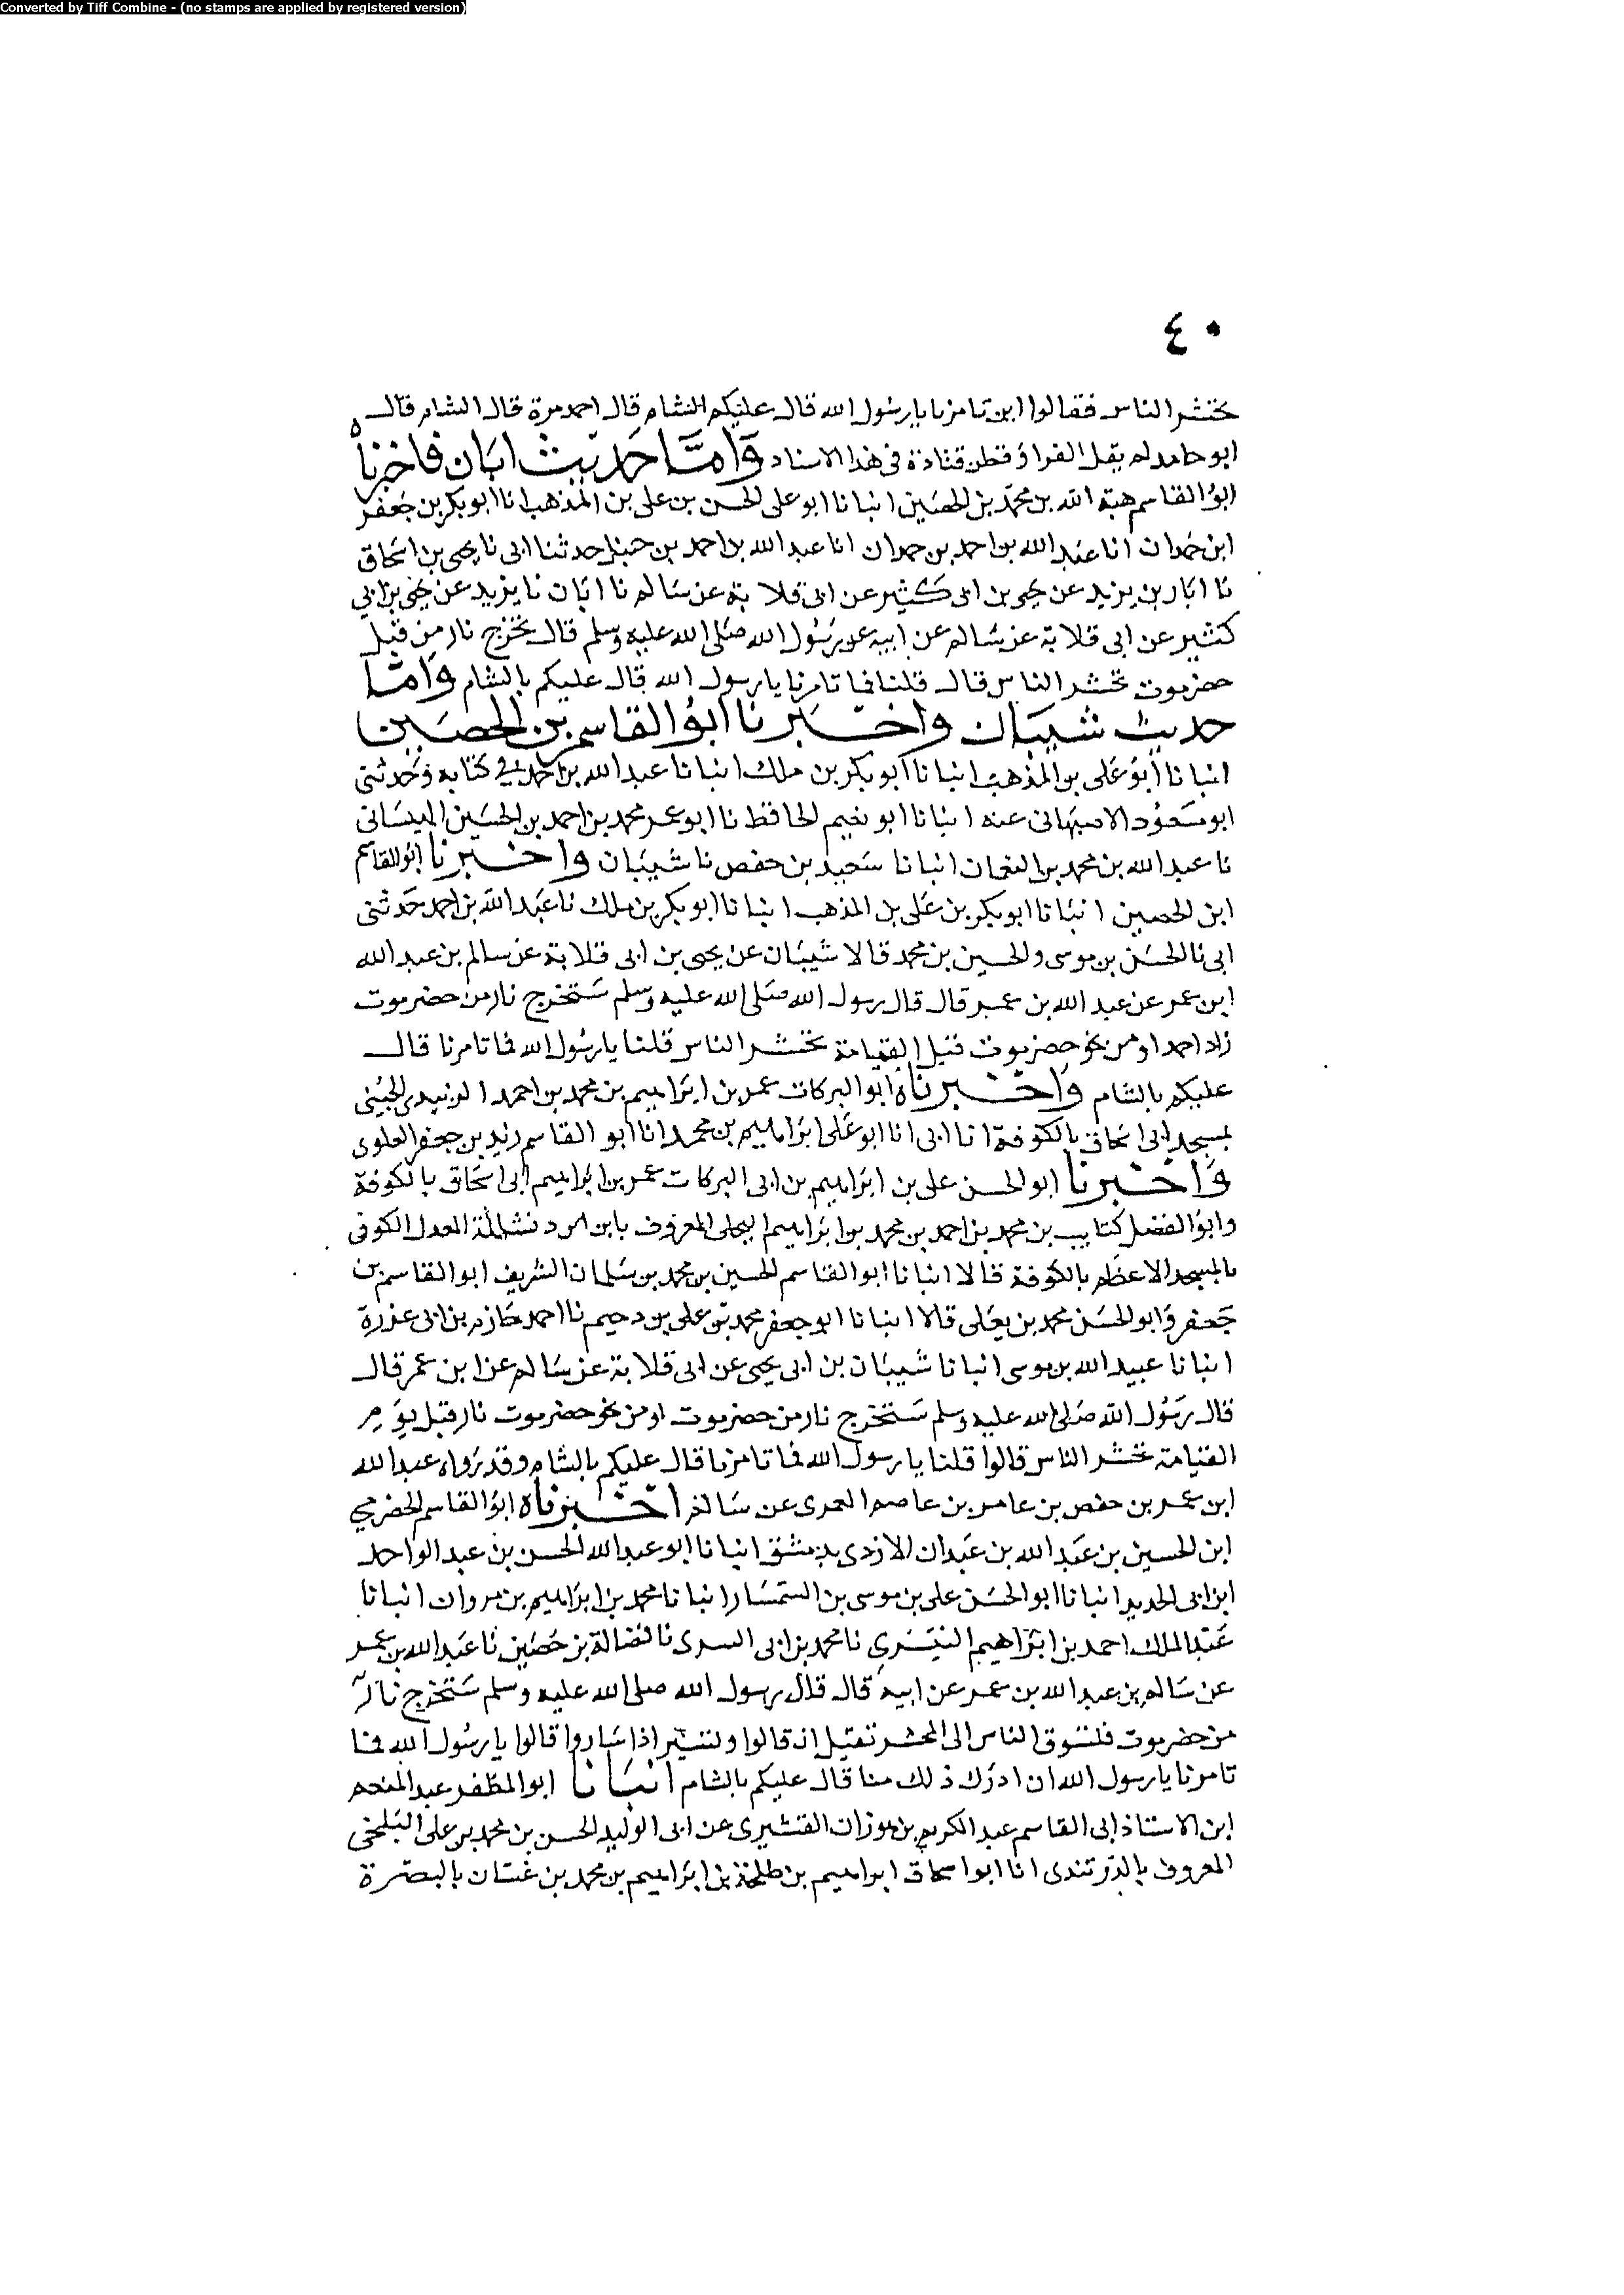 Converted by Tiff Combine - (no stamps are applied by registered version)
٤٠
تحشر الناس فقالوا اين تامرنا يا رسول الله قال عليكم الشام قال احمد مرة قال الشام قال
ابو حامد لم يقل الفراوى قتادة فى هذا الاسناد وَامَّا حَديث ابَان فاخبرنا
ابوُ القاسم هبة الله بن محمد بن الحصَين انبانا ابو على الحسن بن على بن المذهب انا ابو بكر بن جَعفر
ابن حمدان انا عبد الله بن احمد بن حمدان انا عبد الله بن احمد بن حنبل حدثنا ابى نا يحيى بن اسَحاق
نا ابان بن يزيد عن يحيى بن ابى كَثير عن ابى قلابة عن سَالم نا ابَان نا يزيد عن يحيى بن ابي
كثير عن ابى قلابة عن سَالم عن ابيه عن رَسُول الله صَلى الله عليه وسلم قال تخرج نار من قبل
حضرموت تحشر الناس قال قلنا فما تامرنا يا رسول الله قال عليكم بالشام وَامَّا
حديث شيبَان واخبرنا ابوُ القاسم بن الحصَين
انبانا ابوُ عَلى بن المذهب انبانا ابو بكر بن ملك انبانا عبد الله بن احمد فى كتابه وَحَدثنى
ابو مسَعوُد الاصبهانى عنه انبانا ابو نعيم الحافظ نا ابو عمر محمد بن احمد بن الحسَين الميسَانى
نا عبد الله بن محمد بن النعمان انبانا سَعيد بن حفص نا شيبَان واخبرنا ابوُ القاسم
ابن الحصين انبَانا ابو بكر بن عَلى بن المذهب انبانا ابو بكر بن ملك نا عبَد الله بن احمد حَدثنى
ابى نا الحسَن بن موسى والحسين بن محمد قالا شيبَان عن يحيى بن ابى قلابة عن سالم بن عبد الله
ابن عمر عن عبد الله بن عمر قال قال رسول الله صَلى الله عليه وسلم سَتخرج نار من حضرموت
زاد احمد او من نحو حضرموت قبل القيامة تحشر الناس قلنا يا رسُول الله فما تامرنا قال
عليكم بالشام وَاخبرناهُ ابو البركات عمر بن ابرَاهيم بن محمد بن احمد الزيدى الحُسينى
بمسجد ابى اسَحاق بالكوفة انا ابى انا ابو عَلى ابرَاهيم بن محمد انا ابو القاسم زيد بن جعفر العلوى
وَاخبرنا ابو الحسن على بن ابرَاهيم بن ابى البركات عمر بن ابرَاهيم ابى اسَحَاق بالكوفة
وابوُ الفضل بن محمد بن احمد بن محمد بن ابرَاهيم البجلى المعروف بابن العدل الكوفى
بالمسجد الاعظم بالكوفة قالا انبانا ابو القاسم الحسين بن محمد بن سَلمان الشريف ابو القاسم بن
جَعفر وَابو الحسَن محمد بن يعَلى قالا انبانا ابو جعفر محمد بن على بن دحيم نا احمد حَازم بن ابى غرزة
انبانا عبيد الله بن موسى انبانا شيبَان بن ابى يحيى عن ابى قلابة عن سَالم عن ابن عمر قال
قال رسَوُل الله صَلى الله عليه وَسلم سَتخرج نار من حضرموت او من نحو حضرموت نار قبل يوَمِ
القيامة تحشر الناس قالوا قلنا يا رسول الله فما تامرنا قال عليكم بالشام وقد رَواه عبد الله
ابن عمر بن حفص بن عامر بن عاصم العمرى عن سَالم اخبرناه ابوُ القاسم الخضر
ابن الحسين بن عبَد الله بن عبَدان الازدى بدمشق انبانا ابو عبد الله الحسن بن عبد الواحد
ابن ابى الحديد انبانا ابو الحسَن على بن موسى بن السَمسَار انبانا محمد بن ابرَاهيم بن مروان انبانا
عَبد الملك احمد بن ابرَاهيم نا محمد بن ابى السرى نا فضالة بن حصَين نا عبَد الله بن عمر
عن سَالم بن عبد الله بن عمر عن ابيه قال قال رسول الله صلى الله عليه وسلم سَتخرج نارٌ
من حضرموت فلتسَوق الناس الى المحشر تقيل اذ قالوا ولتسَير اذا سَاروا قالوا يا رسُول الله فما
تامرنا يا رسول الله ان ادرَك ذلك منا قال عليكم بالشام انبَانا ابو المظفر عبد المنعم
ابن الاستاذ ابى القاسم عبد الكريم بن هوزان القشيرى عن ابى الوليد الحسن بن محمد بن على البَلخى
المعروف بالدرَبندى انا ابو اسحاق ابراهيم بن طلحة بن ابرَاهيم بن محمد بن غسَان بالبصَرة